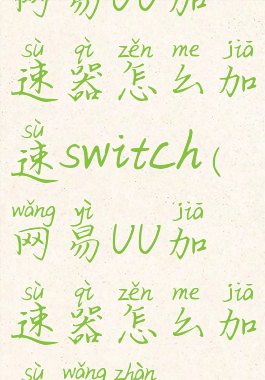 网易UU加
sù qì zěn me jiā
速器怎么加
sù
速switch(
wǎng yì jiā
网易UU加
sù qì zěn me jiā
速器怎么加
sù wǎng zhàn